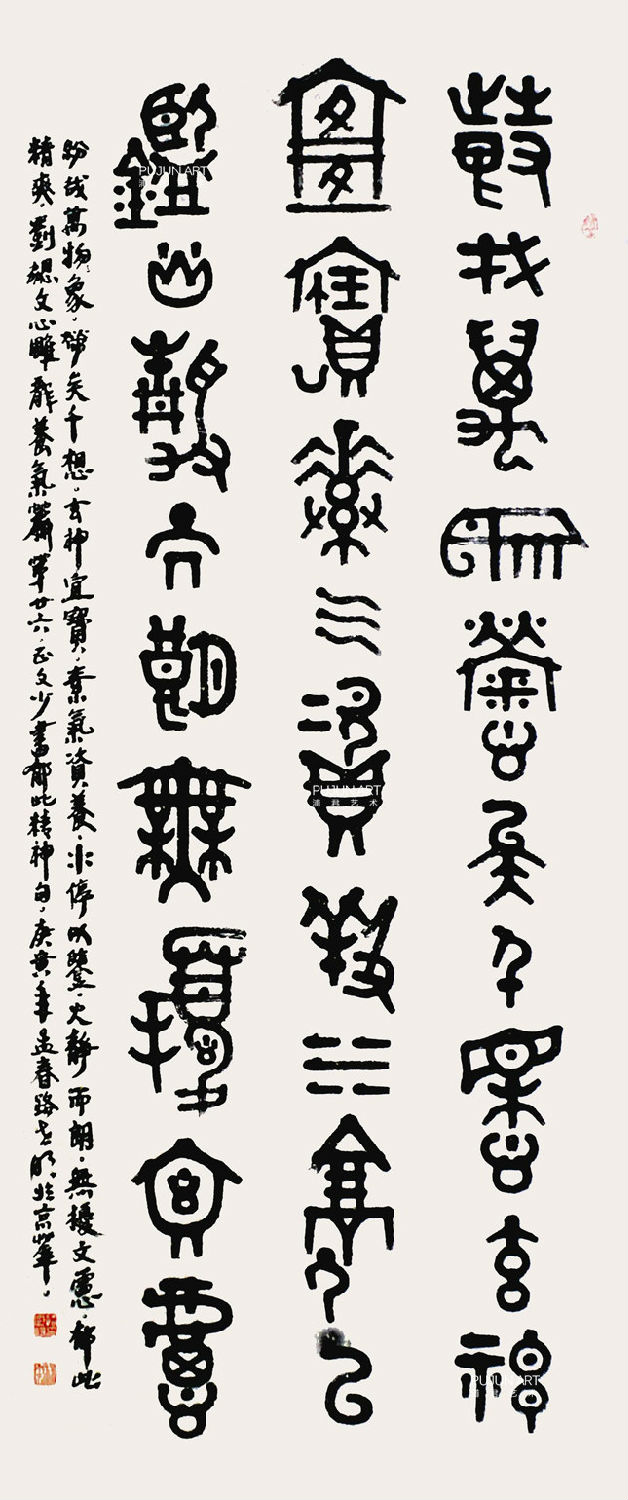 紛哉萬象勞矣千想玄神
宜寶素气資養水停以
鑑火靜而朗無擾文慮
紛哉萬物象勞矣千想玄神宜寶素氣資養水停以鑒火靜而朗無擾文慮郁此
精爽劉勰文心雕龍養氣篇第廿六正文少書郁此精神句庚寅年孟春路於京華
PUJUN ART
浦君艺术